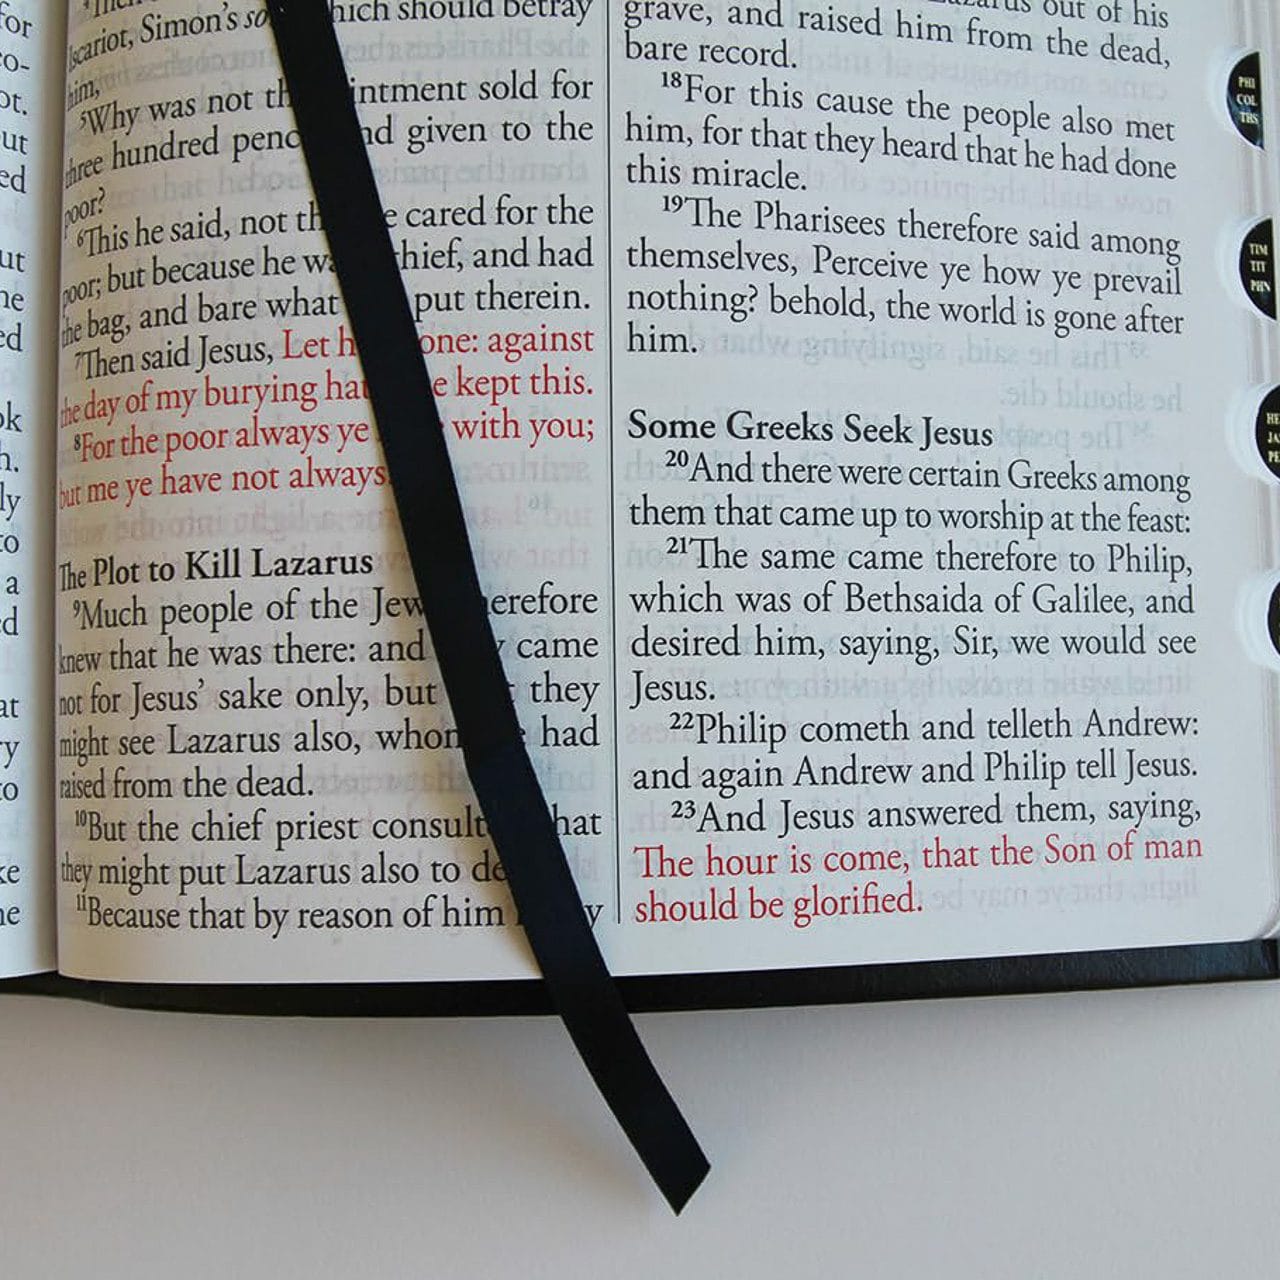 for
co-
ot.
but
ed
out
he
ed
ok
h.
ly
to
a
ed
at
ry
to
ke
he
Iscariot, Simon's so which should betray
him,
5Why was not th intment sold for
three hundred penc nd given to the
poor?
6This he said, not th e cared for the
poor; but because he wa thief, and had
the bag, and bare what put therein.
7Then said Jesus, Let h one: against
the day of my burying hat e kept this.
8For the poor always ye with you;
but me ye have not always
The Plot to Kill Lazarus
9Much people of the Jew herefore
knew that he was there: and y came
not for Jesus' sake only, but t they
might see Lazarus also, whom e had
raised from the dead.
10But the chief priest consult hat
they might put Lazarus also to de
11Because that by reason of him y
Lazarus out of his
grave, and raised him from the dead,
bare record.
18For this cause the people also met
him, for that they heard that he had done
this miracle.
19The Pharisees therefore said among
themselves, Perceive ye how ye prevail
nothing? behold, the world is gone after
him.
Some Greeks Seek Jesus
20And there were certain Greeks among
them that came up to worship at the feast:
21The same came therefore to Philip,
which was of Bethsaida of Galilee, and
desired him, saying, Sir, we would see
Jesus.
22Philip cometh and telleth Andrew:
and again Andrew and Philip tell Jesus.
23And Jesus answered them, saying,
The hour is come, that the Son of man
should be glorified.
PHI
COL
THS
TIM
TIT
PHN
HE
JA
PE